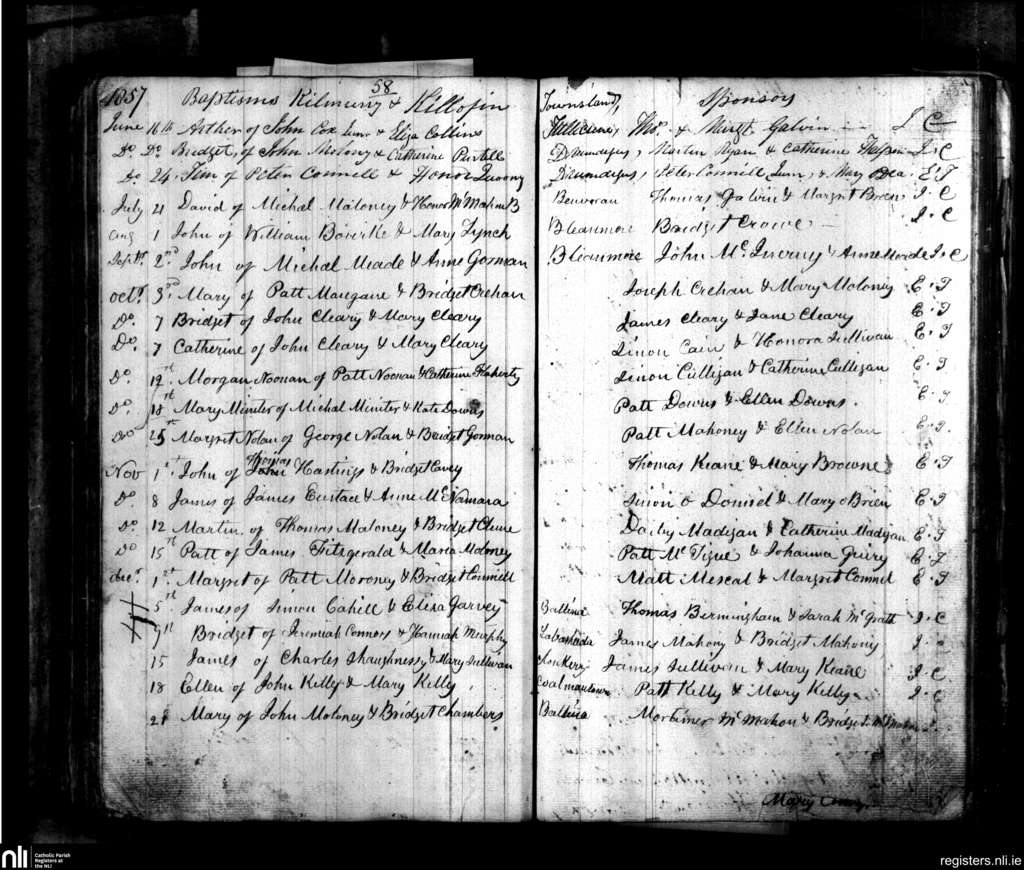 58
1857 Baptisms Kilmurry & Killofin Townland, Sponsors
June 16th Arther of John Cox Junr & Eliza Collins Thos. & Margt Galvin J C
Do. Do. Bridget, of John Molony & Catherine Purtell Martin Ryan & Catherine J. C
Do 24. Tim of Peter Connell & Honor Peter Connell Junr, & Mary E. J
July 21 David of Michal Maloney & Honor McMahon B Thomas Galvin & Margret Breen J. C
Aug 1 John of William & Mary Lynch Bridget Crowe J. C
Septr. 2nd. John of Michal Meade & Anne Gorman John Mc. & Anne Meade J. C
Octr. 3rd. Mary of Patt Mangane & Bridget Crehan Joseph Crehan & Mary Maloney E. J
Do. 7 Bridget of John Cleary & Mary Cleary James Cleary & Jane Cleary E. J
Do. 7 Catherine of John Cleary & Mary Cleary Simon Cain & Honora Sullivan E. J
Do. Morgan Noonan of Patt Noonan & Catherine Flaherty Simon Culligan & Catherine Culligan E. J
Do. 18 Mary Miniter of Michal Miniter & Kate Downs Patt Downs & Ellen Downs. E. J
Do 25 Margret Nolan of George Nolan & Bridget Gorman Patt Mahoney & Ellen Nolan E. J.
Nov 1st. John of Thomas Hastings & Bridget Thomas Keane & Mary Browne E. J
Do. 8 James of James Eustace & Anne McNamara Simon & Mary oBrien E. J
Do. 12 Martin of Thomas Maloney & Bridget Clune Madigan & Catherine Madigan E. J
Do 15 Patt of James Fitzgerald & Maria Moloney Patt McTigue & Johanna E. J
Decr. 1st. Margret of Patt Moroney & Bridget Connell Matt Mescal & Margret Connel E. J
5 James of Simon Cahill & Eliza Garvey Ballina Thomas Bermingham & Sarah McGrath J. C
9 Bridget of Jeremiah Connors & Hannah Murphy Labasheeda James Mahony & Bridget Mahony J.
15 James of Charles Shaughnessy & Mary Sullivan James Sullivan & Mary Keane J. C
18 Ellen of John Kelly & Mary Kelly Patt Kelly & Mary Kelly J. C
21 Mary of John Moloney & Bridget Chambers Ballina Mortimer McMahon & Bridget McMahon
Mary
nli Catholic Parish
Registers at
the NLI
registers.nli.ie